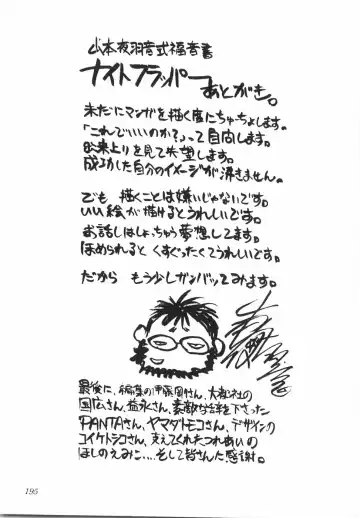 山本夜羽音式福音書
ナイトフラッパーあとがき。
未だにマンガを描く度にちゅうちょします。
「これでいいのか？」って自問します。
出来上りを見て失望します。
成功した自分のイメージが湧きません。
でも 描くことは嫌いじゃないです。
いい絵が描けるとうれしいです。
お話しはしょっちゅう夢想してます。
ほめられると くすぐったくてうれしいです。
だから もう少しガンバッてみます。
最後に、編集の伊藤剛さん、大都社の
国広さん、益永さん、素敵な詩を下さった
PANTAさん、ヤマダトモコさん、デザインの
コイケトシコさん、支えてくれたつれあいの
ほしのえみこ…、そして皆さんに感謝。
195